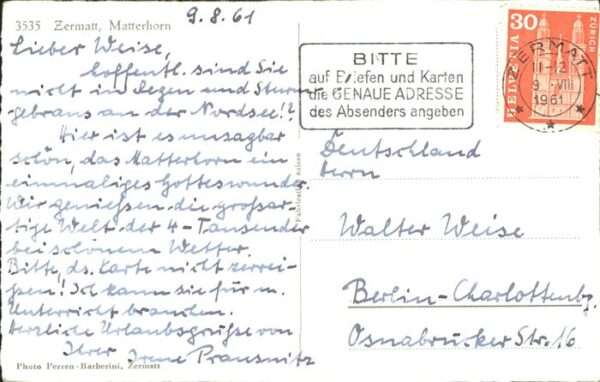 3535 Zermatt, Matterhorn
9.8.61
Lieber Weise,
hoffentl. sind Sie
nicht in Regen und Sturm-
gebraus an der Nordsee!?
Hier ist es unsagbar
schön, das Matterhorn ein
einmaliges Gotteswunder.
Wir genießen die großar-
tige Welt der 4-Tausender
bei schönem Wetter.
Bitte, ds. Karte nicht zerrei-
ßen! Ich kann sie für m.
Unterricht brauchen.
Herzliche Urlaubsgrüße von
Ihrer Irene Prausnitz
Photo Perren-Barberini, Zermatt
BITTE
auf Briefen und Karten
die GENAUE ADRESSE
des Absenders angeben
30
HELVETIA
ZÜRICH
ZERMATT
11-12
9.VIII
1961
Deutschland
Herrn
Walter Weise
Berlin-Charlottenbg.
Osnabrücker Str. 16